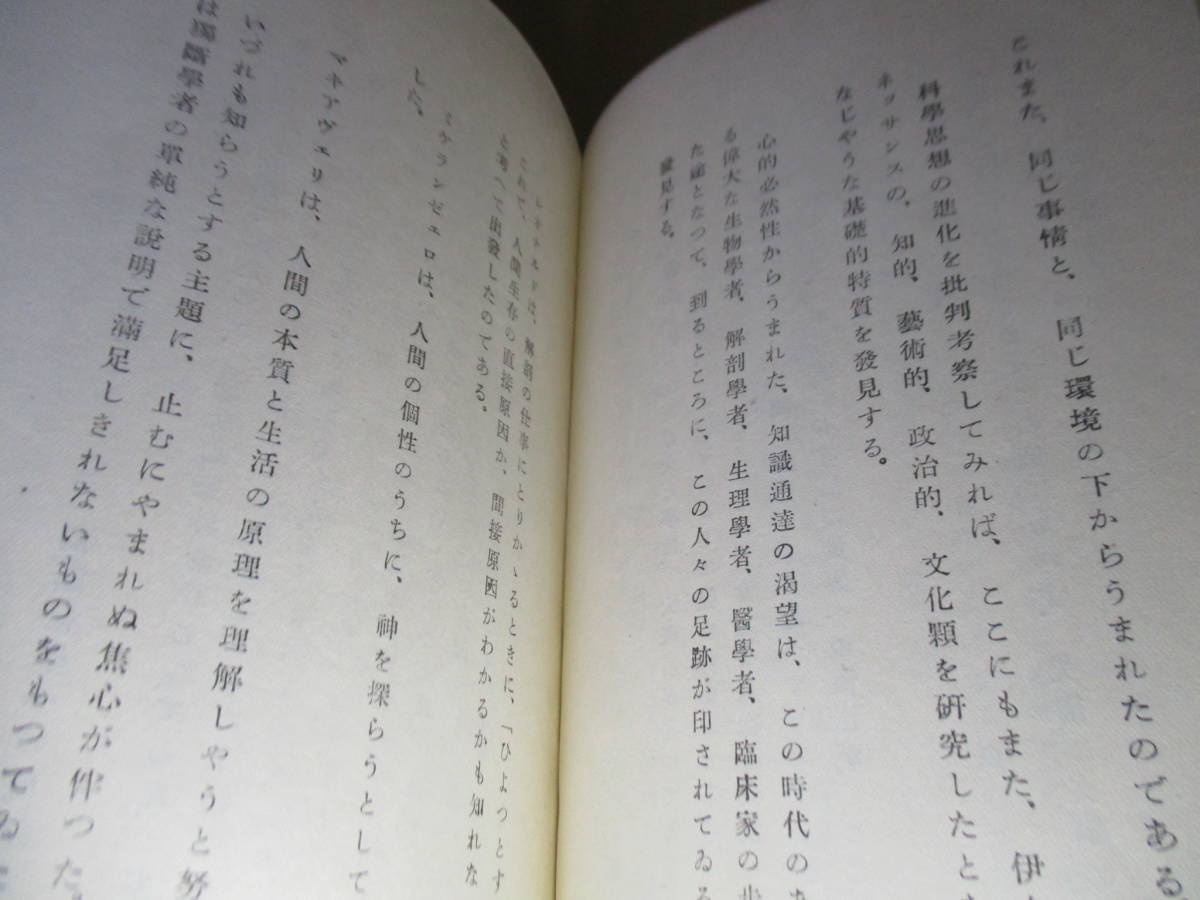 これまた、同じ事情と、同じ環境の下からうまれたのである
科學思想の進化を批判考察してみれば、ここにもまた、伊
ネッサンスの、知的、藝術的、政治的、文化顆を研究したとき
なじやうな基礎的特質を發見する。
心的必然性からうまれた、知識通達の渴望は、この時代のあ
る偉大な生物學者、解剖學者、生理學者、醫學者、臨床家の步
た途となつて、到るところに、この人々の足跡が印されてゐる
發見する。
レオナルドは、解剖の仕事にとりかゝるときに、「ひよつとす
これで、人間生存の直接原因か、間接原因がわかるかも知れな
と考へて出發したのである。
ミケランゼェロは、人間の個性のうちに、神を探らうとして
した。
マキアヴェリは、人間の本質と生活の原理を理解しやうと努
いづれも知らうとする主題に、止むにやまれぬ焦心が伴つた
は獨斷學者の單純な說明で滿足しきれないものをもつてゐた